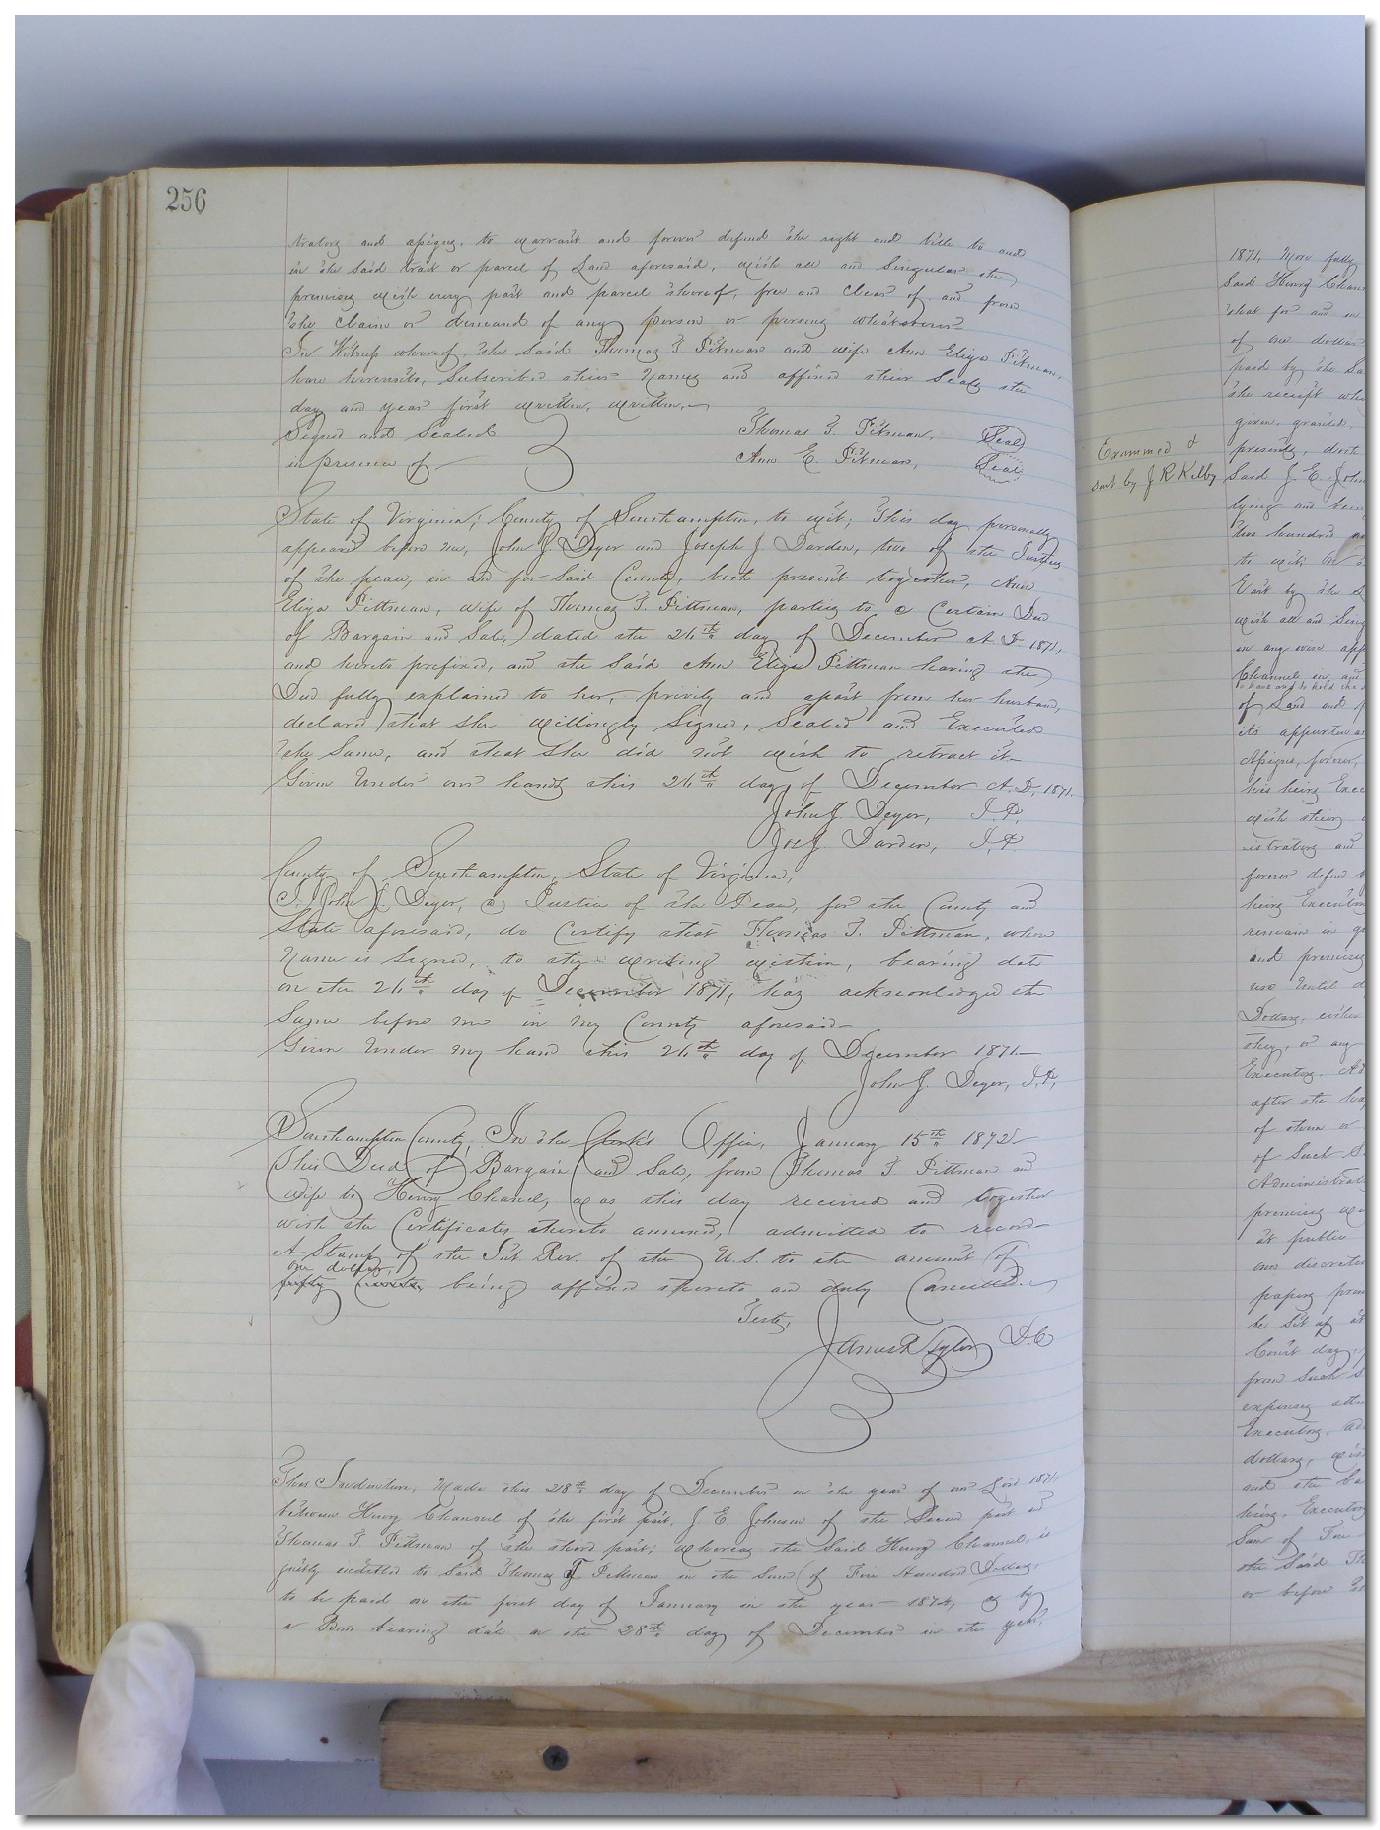 256
trators and assigns, to warrant and forever defend the right and title to and
in the said tract or parcel of Land aforesaid, with all and Singular the
premises with every part and parcel thereof, free and clear of and from
the claim or demand of any person or persons whatsoever
In Witness whereof, the said Thomas T. Pitman and wife Ann Eliza Pitman,
have hereunto, Subscribed their Names and affixed their Seals the
day and year first written, written,
Signed and Sealed
in presence of
Thomas T. Pitman, Seal
Ann E. Pitman, Seal
State of Virginia; County of Southampton, to wit; This day personally
appeared before me, John J. Deyer and Joseph J. Darden, two of the Justices
of the peace, in and for Said County, both present together, Ann
Eliza Pittman, wife of Thomas T. Pittman, parties to a Certain Deed
of Bargain and Sale, dated the 26th day of December A. D. 1871,
and hereto prefixed, and the Said Ann Eliza Pittman having the
Deed fully explained to her, privily and apart from her husband,
declared that She willingly Signed, Sealed and Executed
the Same, and that She did not wish to retract it
Given Under our hands this 26th day of December A. D. 1871.
John J. Deyer, J. P.
Jos J. Darden, J. P.
County of Southampton, State of Virginia,
I, John J. Deyer, a Justice of the Peace, for the County and
State aforesaid, do Certify that Thomas T. Pittman, whose
Name is Signed, to the writing written, bearing date
on the 26th day of December 1871, has acknowledged the
Same before me in my County aforesaid
Given Under my hand this 26th day of December 1871
John J. Deyer, J. P.
Southampton County, In the Clerk's Office, January 15th 1872
This Deed of Bargain and Sale, from Thomas T. Pittman and
wife to Henry Chancel, was this day received and together
with the Certificates thereto annexed, admitted to record
A Stamp of the Int. Rev. of the U. S. to the amount of
one dollar,
fifty cents, being affixed thereto and duly Cancelled.
Teste,
James R Tyler D. C
This Indenture, Made this 28th day of December in the year of our Lord 1871,
between Henry Chancel of the first part, J. E. Johnson of the Second part and
Thomas T. Pittman of the third part; whereas the Said Henry Chancel, is
justly indebted to Said Thomas T Pittman in the Sum of Five Hundred Dollars
to be paid on the first day of January in the year 1874, as by
a Bond bearing date on the 28th day of December in the year,
Examined &
sent by J R Kilby
1871, More fully
Said Henry Chan
that for and in
of one dollar
paid by the Sa
the receipt whe
given, granted,
presents, doth
Said J. E. John
lying and being
two hundred
to wit; On
East by the
with all and Sing
in any wise app
Chancel in and
to have and to hold the
of Land and
its appurtenan
Assigns, forever,
his heirs Exec
with their
istrators and
forever defend
heirs Executors
remain in
and premises
use Until
Dollars, either
they, or any
Executors. Ad
after the
of them or
of Such
Administrat
premises
at public
one discrete
papers prin
be Set up at
Court day,
from such
expenses atten
Executors, ad
dollars, with
and the
heirs, Executors
Sum of Five
the Said Th
or before